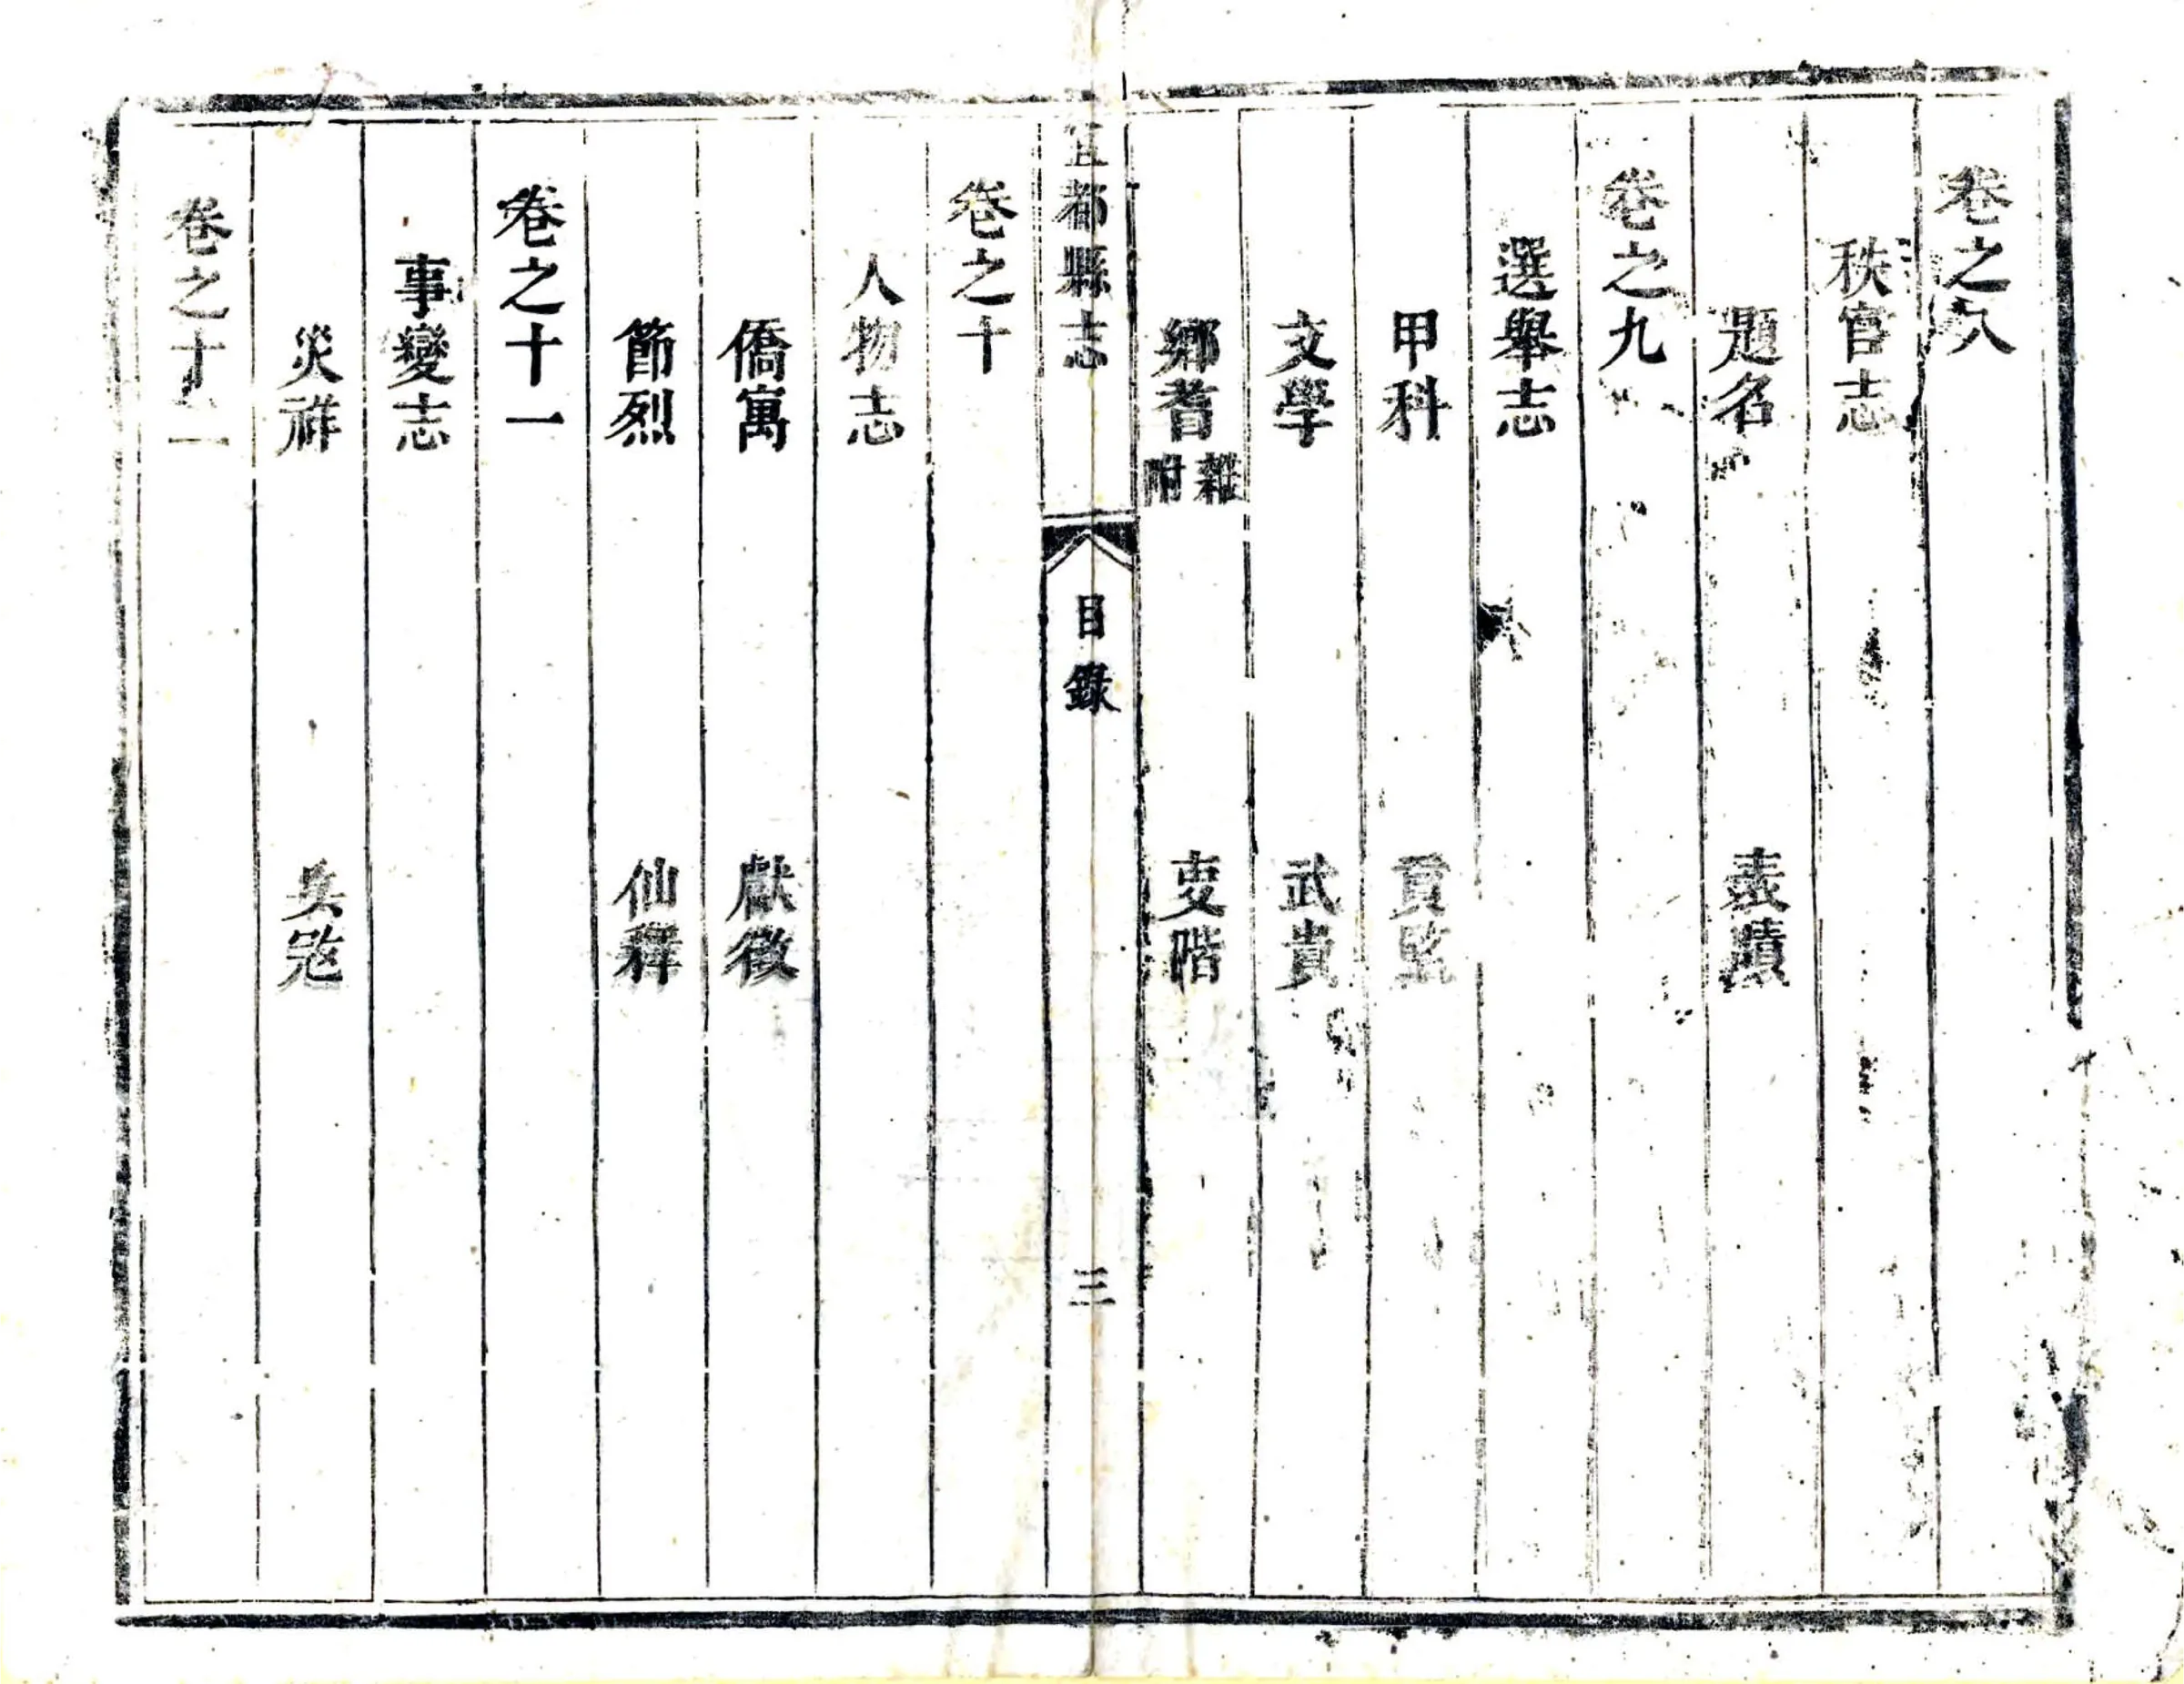 卷之八
秩官志
題名 表蹟
卷之九
選舉志
甲科 貢監
文學 武貴
鄉耆 雜附 吏階
宜都縣志 目錄 三
卷之十
人物志
僑寓 獻徵
節烈 仙釋
卷之十一
事變志
災祥 兵寇
卷之十二